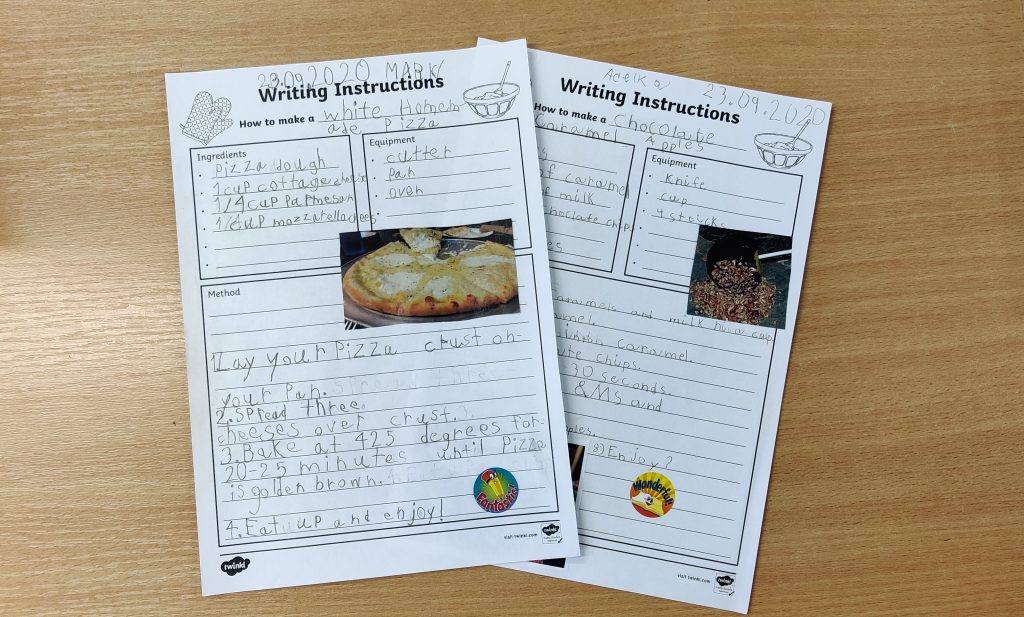 23.09.2020 MARK
Writing Instructions
How to make a white Homem
ade Pizza
Ingredients
pizza dough
1 cup cottage cheese
1/4 cup Parmesan
1/4 cup mozzarella chees
Equipment
cutter
pan
oven
Method
1. Lay your Pizza crust on
your Pan.
2. spread three.
cheeses over crust.
3. Bake at 425 degrees for
20-25 minutes until Pizza
is golden brown.
4. Eat up and enjoy!
Fantastic!
twinkl
visit twinkl
Adelka 23.09.2020
Writing Instructions
How to make a chocolate
Caramel Apples
of caramel
of milk
chocolate chips
Equipment
Knife
cup
4 sticks
caramels and milk
caramel.
caramel.
chips.
30 seconds.
&Ms and
(8) Enjoy?
Wonderful!
visit twinkl.com